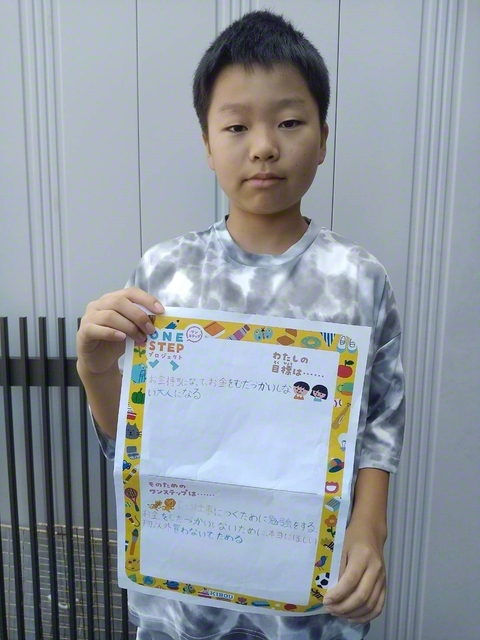 ONE
STEP
プロジェクト
ワン
ステップ
わたしの
目標は……
お金持ちになって、お金をむだづかいしな
い大人になる
そのための
ワンステップは……
仕事につくために勉強をする
お金をむだづかいしないために本当にほしい
以外買わないでためる
KIBOU